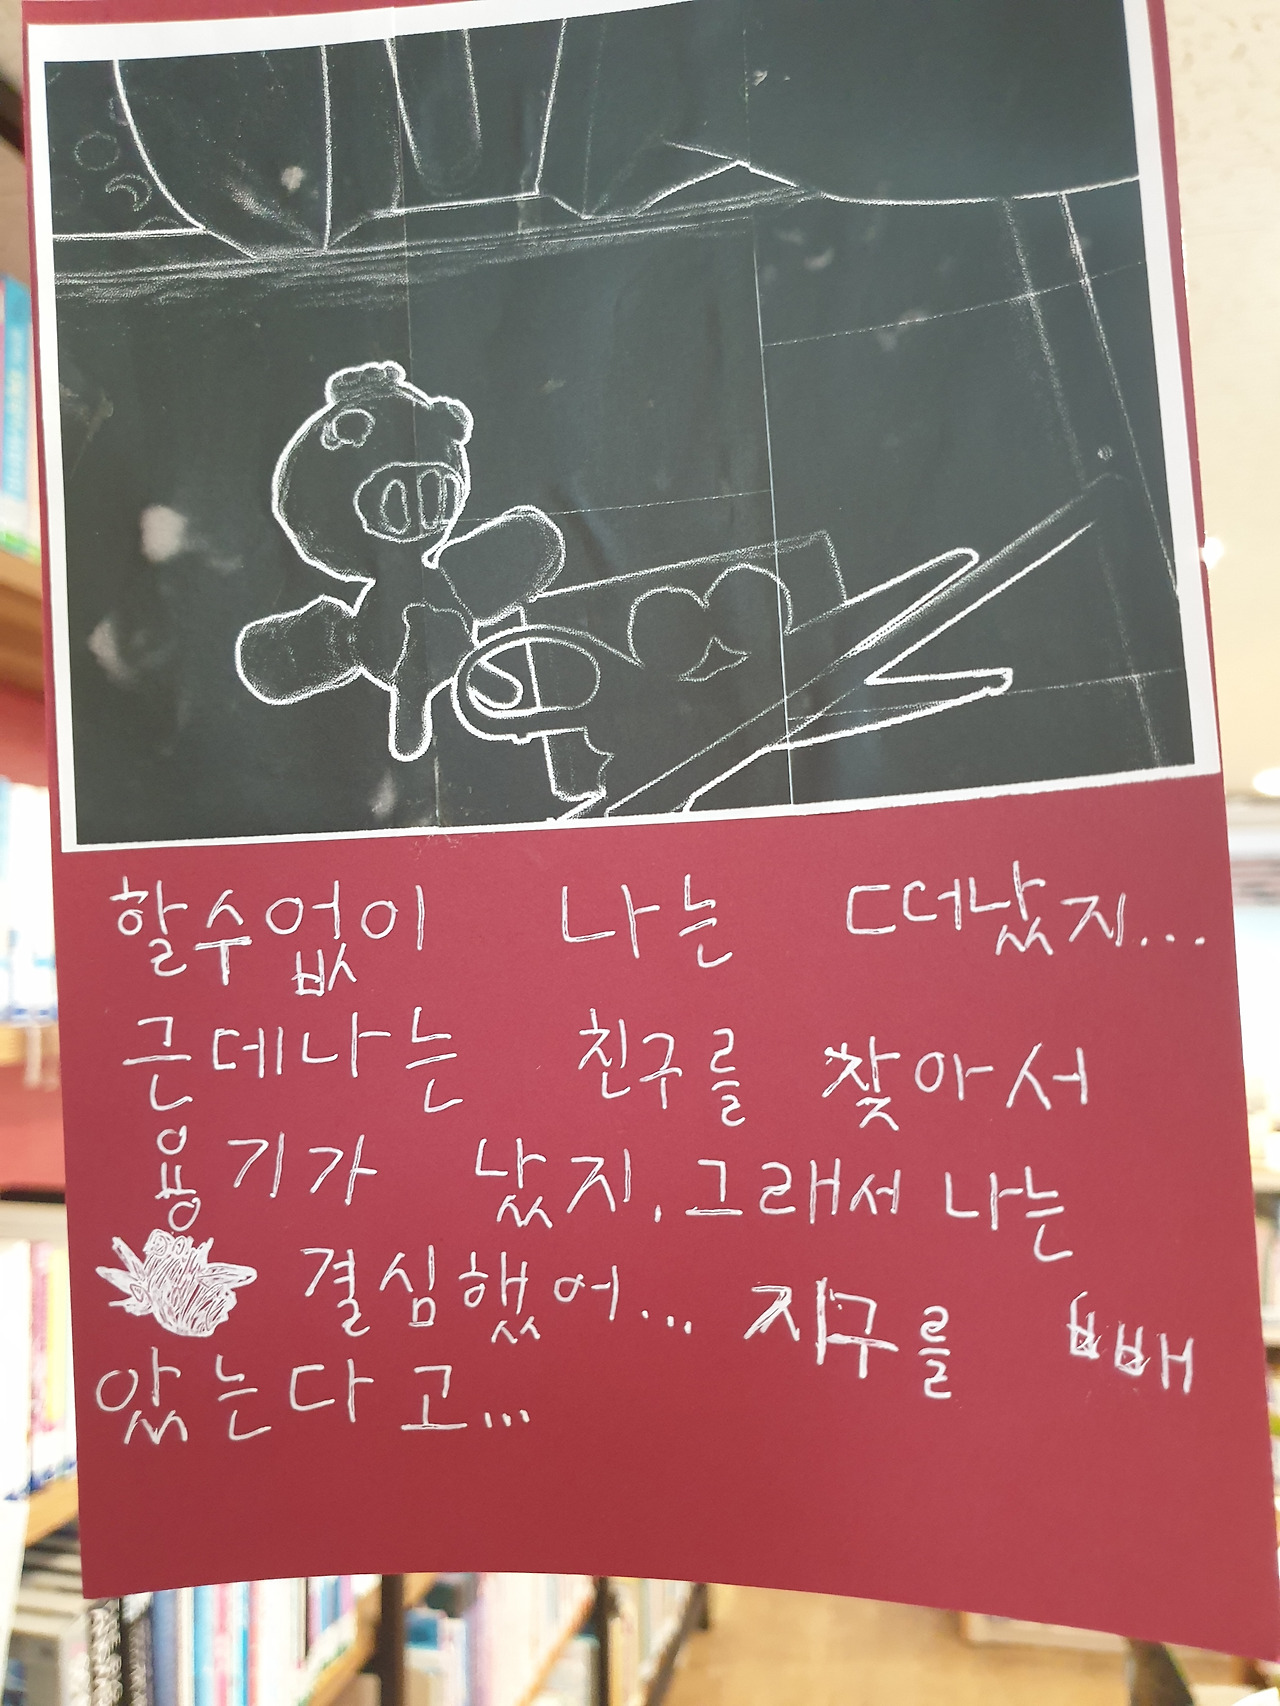 할수없이 나는 떠났지...
근데나는 친구를 찾아서
용기가 났지. 그래서 나는
결심했어... 지구를 빼
았는다고...